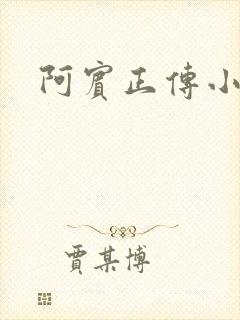 阿賓正傳小
賈某博